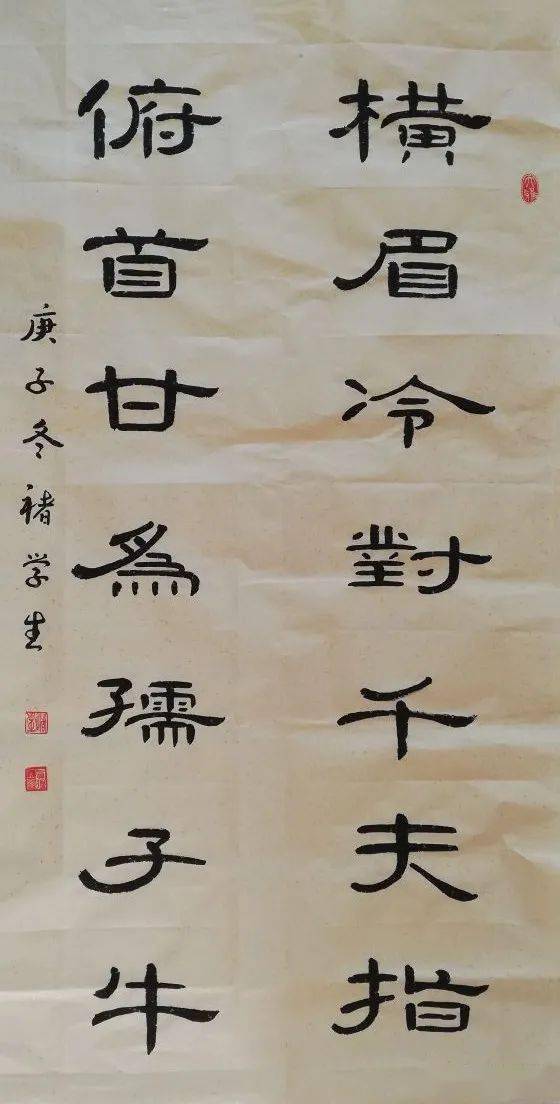 橫眉冷對千夫指
俯首甘為孺子牛
庚子冬褚学生